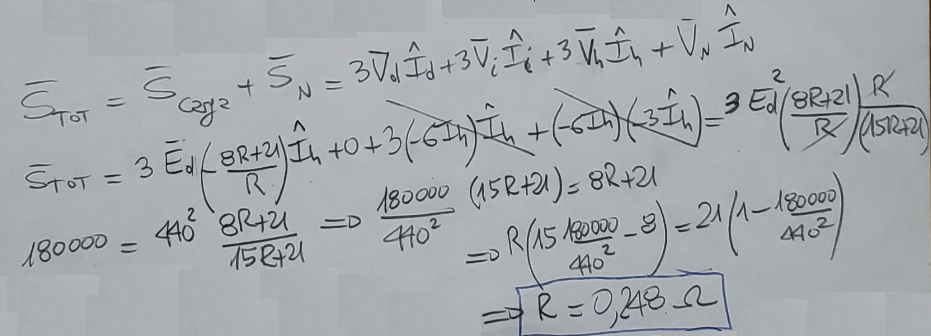 S̄_TOT = S̄_carga + S̄_N = 3V̄_d Î_d + 3V̄_i Î_i + 3V̄_h Î_h + V̄_N Î_N
S̄_TOT = 3 Ē_d (-(8R+21)/R) Î_h + 0 + 3(-6I_h) Î_h + (-6I_h)(-3Î_h) = 3 E_d² ((8R+21)/R) R/(15R+21)
180000 = 440² (8R+21)/(15R+21) => 180000/440² (15R+21) = 8R+21
=> R(15 180000/440² - 8) = 21(1 - 180000/440²)
=> R = 0,248 Ω